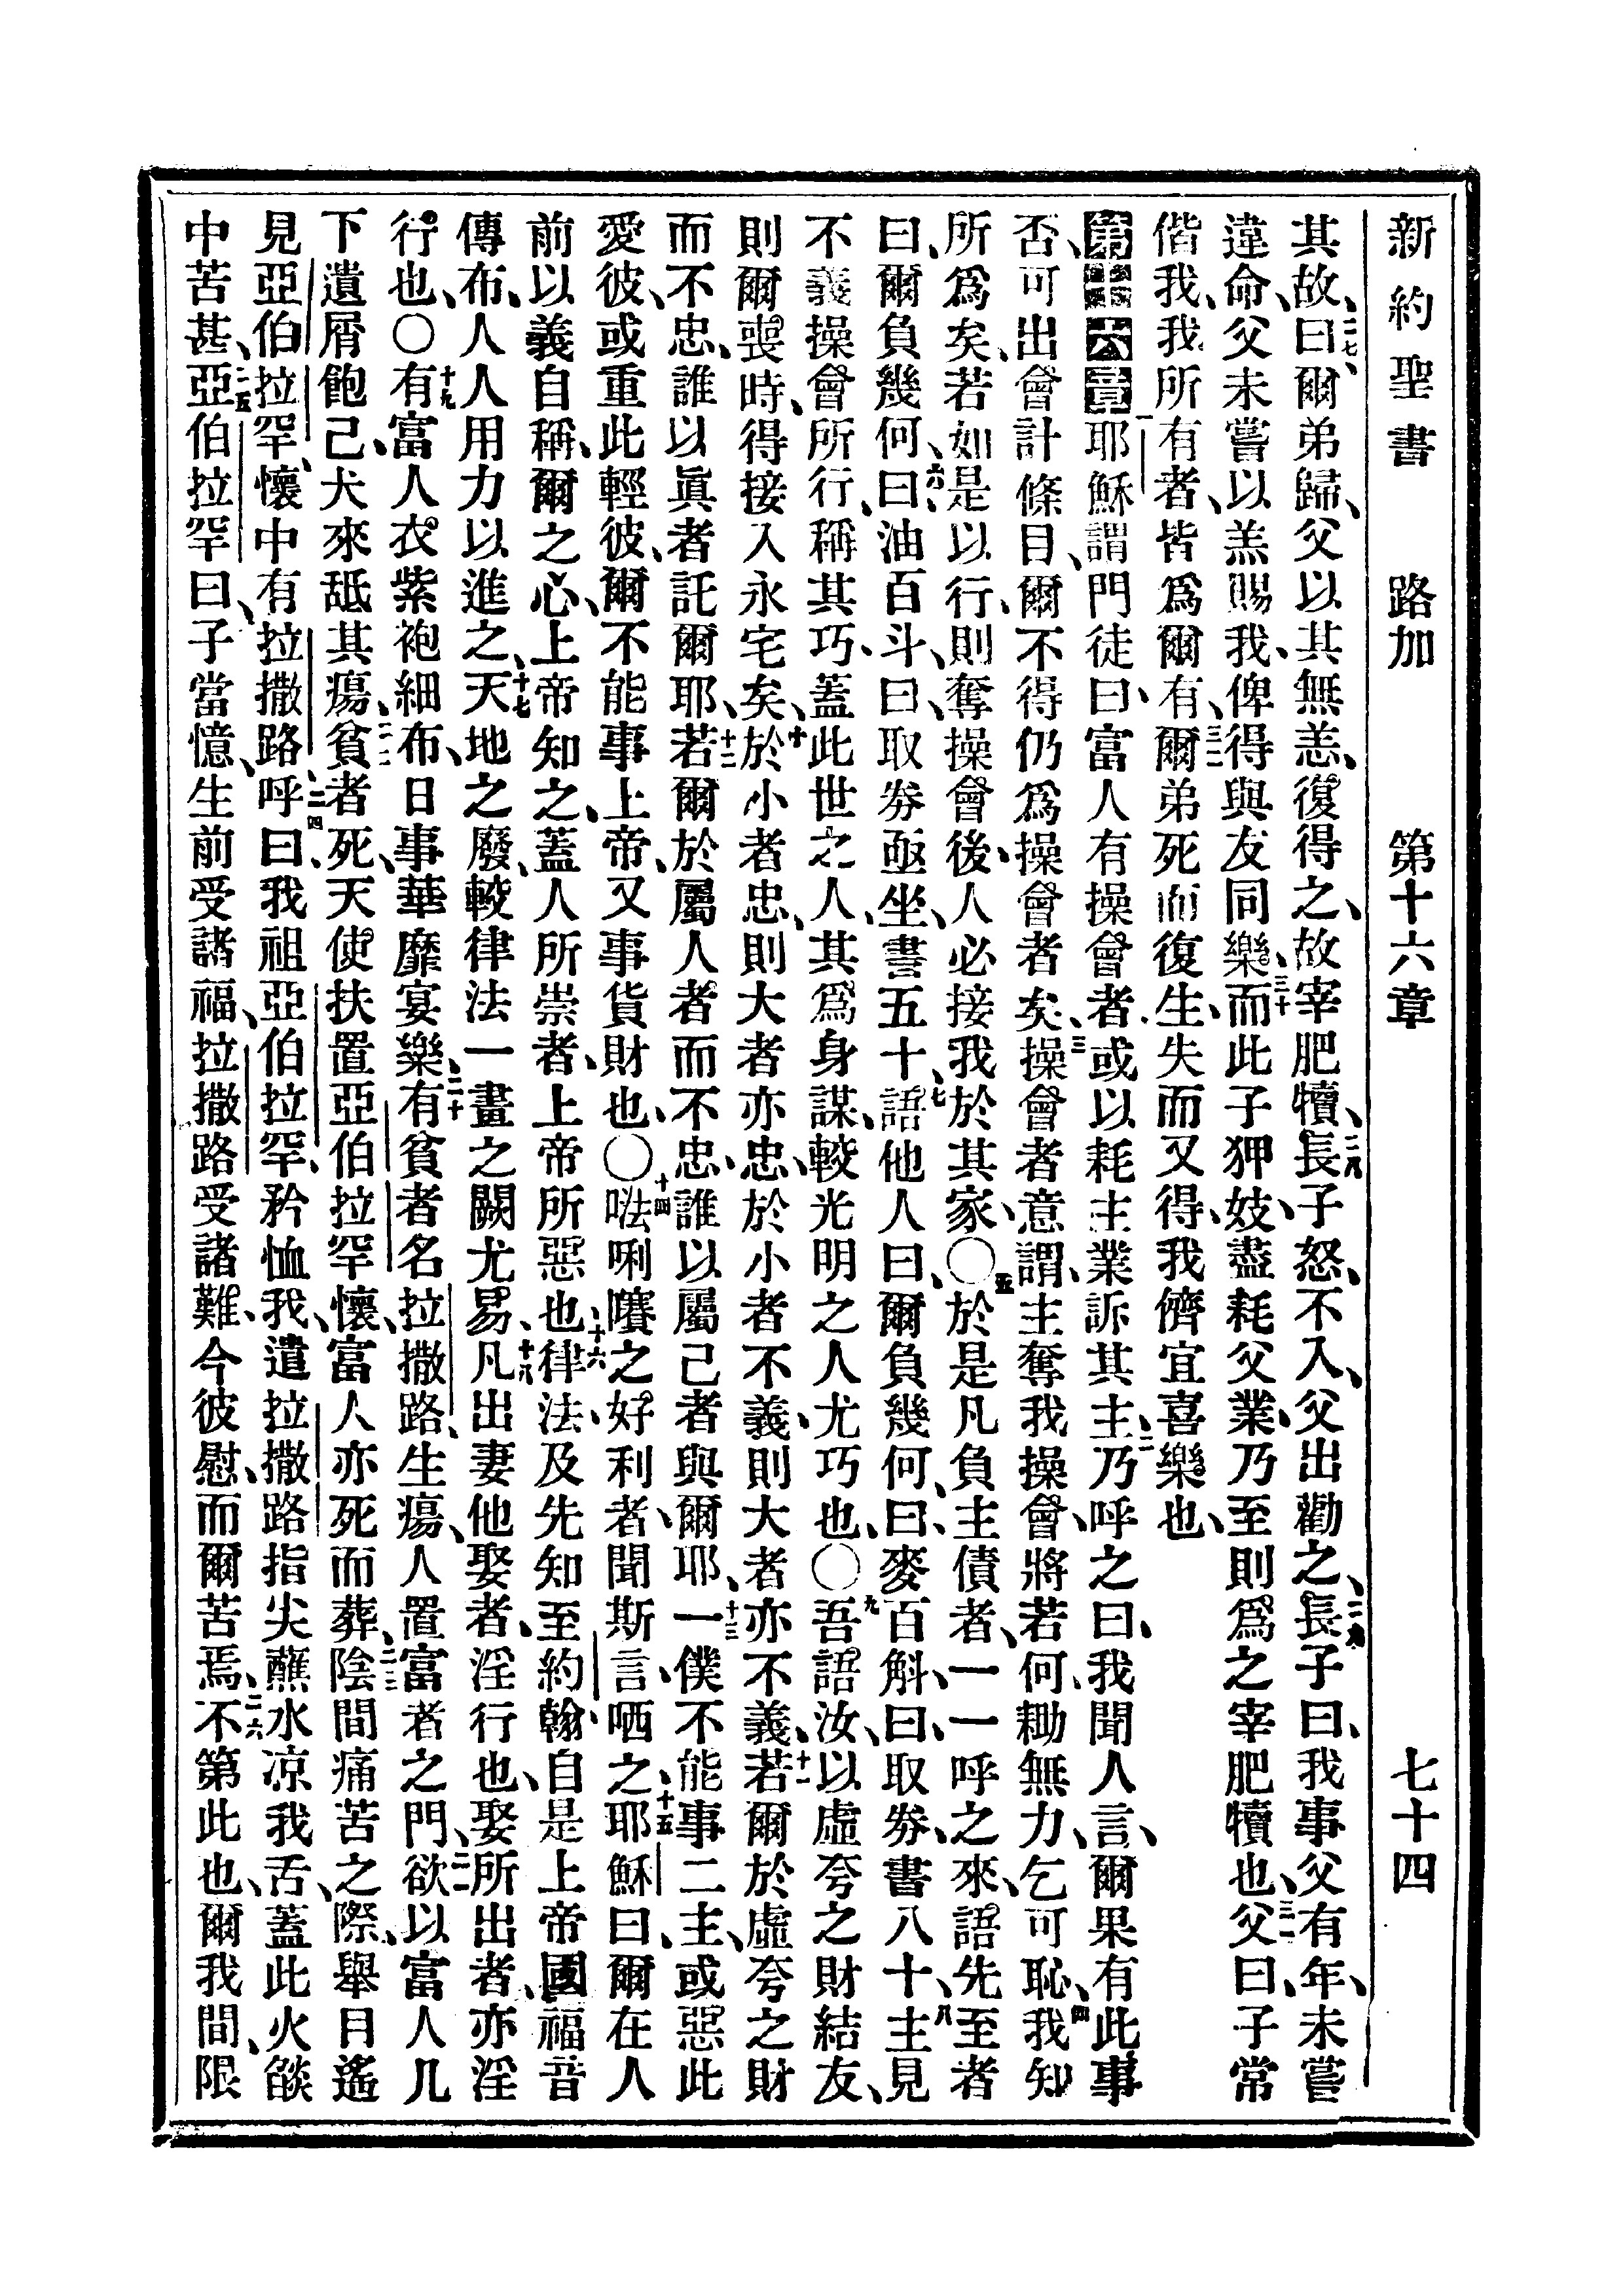 新約聖書 路加 第十六章 七十四
其故、二七曰、爾弟歸、父以其無恙、復得之、故宰肥犢、二八長子怒、不入、父出勸之、二九長子曰、我事父有年、未嘗
違命、父未嘗以羔賜我、俾得與友同樂、三十而此子狎妓、盡耗父業、乃至則爲之宰肥犢也、三一父曰、子常
偕我、我所有者、皆爲爾有、三二爾弟死而復生、失而又得、我儕宜喜樂也、
第十六章 一耶穌謂門徒曰、富人有操會者、或以耗主業訴其主、二乃呼之曰、我聞人言、爾果有此事
否、可出會計條目、爾不得仍爲操會者矣、三操會者意謂、主奪我操會、將若何、耡無力、乞可恥、四我知
所爲矣、若如是以行、則奪操會後、人必接我於其家、〇五於是凡負主債者、一一呼之來、語先至者
曰、爾負幾何、六曰、油百斗、曰、取券亟坐、書五十、七語他人曰、爾負幾何、曰、麥百斛、曰、取券、書八十、八主見
不義操會所行、稱其巧、蓋此世之人、其爲身謀、較光明之人尤巧也、〇九吾語汝、以虛夸之財結友、
則爾喪時、得接入永宅矣、十於小者忠、則大者亦忠、於小者不義、則大者亦不義、十一若爾於虛夸之財
而不忠、誰以眞者託爾耶、十二若爾於屬人者而不忠、誰以屬己者與爾耶、十三一僕不能事二主、或惡此
愛彼、或重此輕彼、爾不能事上帝、又事貨財也、〇十四𠵽唎㘔之好利者、聞斯言哂之、十五耶穌曰、爾在人
前以義自稱、爾之心、上帝知之、蓋人所崇者、上帝所惡也、十六律法及先知至約翰、自是上帝國福音
傳布、人人用力以進之、十七天地之廢、較律法一畫之闕尤易、十八凡出妻他娶者、淫行也、娶所出者、亦淫
行也、〇十九有富人、衣紫袍細布、日事華靡宴樂、二十有貧者名拉撒路、生瘍、人置富者之門、二一欲以富人几
下遺屑飽己、犬來舐其瘍、二二貧者死、天使扶置亞伯拉罕懷、富人亦死而葬、二三陰間痛苦之際、舉目遙
見亞伯拉罕、懷中有拉撒路、二四呼曰、我祖亞伯拉罕、矜恤我、遣拉撒路指尖蘸水凉我舌、蓋此火燄
中苦甚、二五亞伯拉罕曰、子當憶、生前受諸福、拉撒路受諸難、今彼慰、而爾苦焉、二六不第此也、爾我間、限